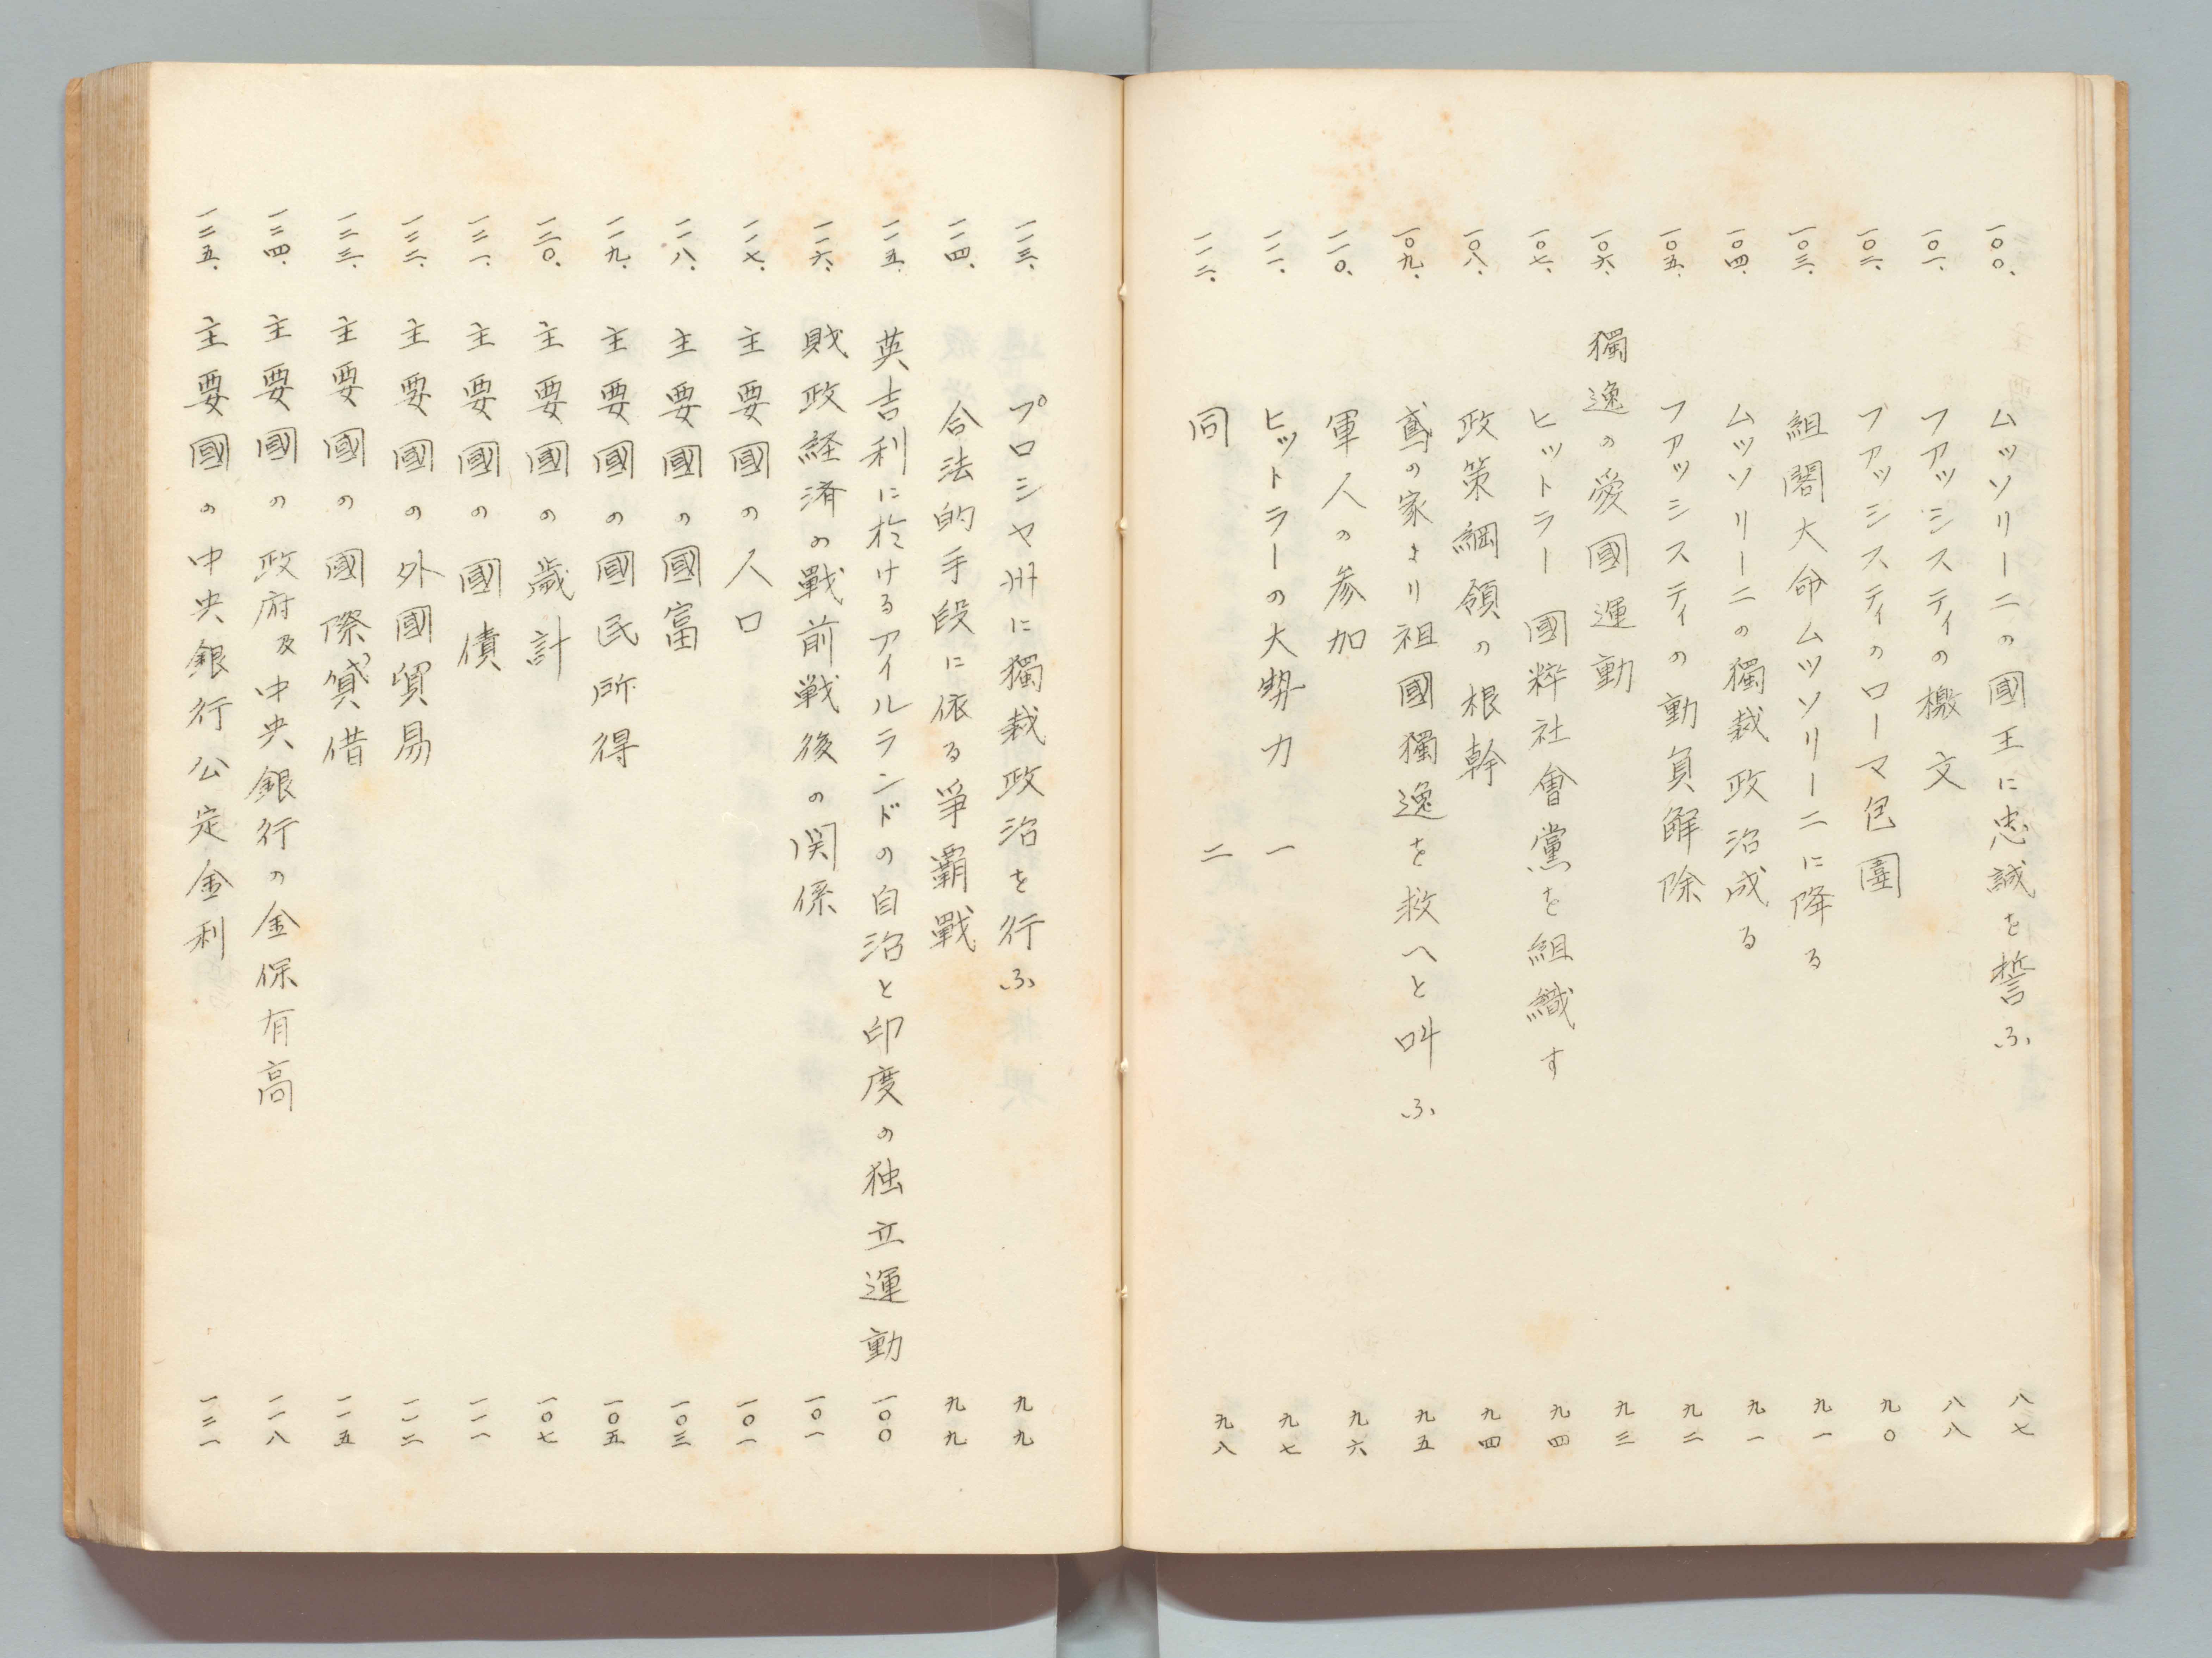 一〇〇、ムッソリーニの國王に忠誠を誓ふ 八七
一〇一、フアッシスティの檄文 八八
一〇二、フアッシスティのローマ包圍 九〇
一〇三、組閣大命ムッソリーニに降る 九一
一〇四、ムッソリーニの獨裁政治成る 九一
一〇五、フアッシスティの動員解除 九二
一〇六、獨逸の愛國運動 九三
一〇七、ヒットラー國粹社會黨を組織す 九四
一〇八、政策綱領の根幹 九四
一〇九、鳶の家より祖國獨逸を救へと叫ふ 九五
一一〇、軍人の参加 九六
一一一、ヒットラーの大勢力 一 九七
一一二、同 二 九八
一一三、プロシヤ州に獨裁政治を行ふ 九九
一一四、合法的手段に依る爭覇戰 九九
一一五、英吉利に於けるアイルランドの自治と印度の独立運動 一〇〇
一一六、財政経済の戰前戦後の関係 一〇一
一一七、主要國の人口 一〇一
一一八、主要國の國富 一〇三
一一九、主要國の國民所得 一〇五
一二〇、主要國の歳計 一〇七
一二一、主要國の國債 一一一
一二二、主要國の外國貿易 一一二
一二三、主要國の國際貸借 一一五
一二四、主要國の政府及中央銀行の金保有高 一一八
一二五、主要國の中央銀行公定金利 一二一